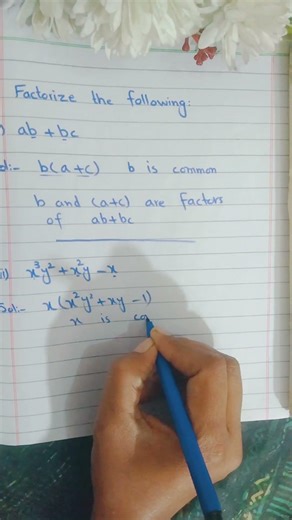 Factorize the following:
) ab + bc
ol:- b(a+c) b is common
b and (a+c) are factors
of ab+bc
ii) x³y² + x²y - x
Sol:- x(x²y' + xy - 1)
x is co